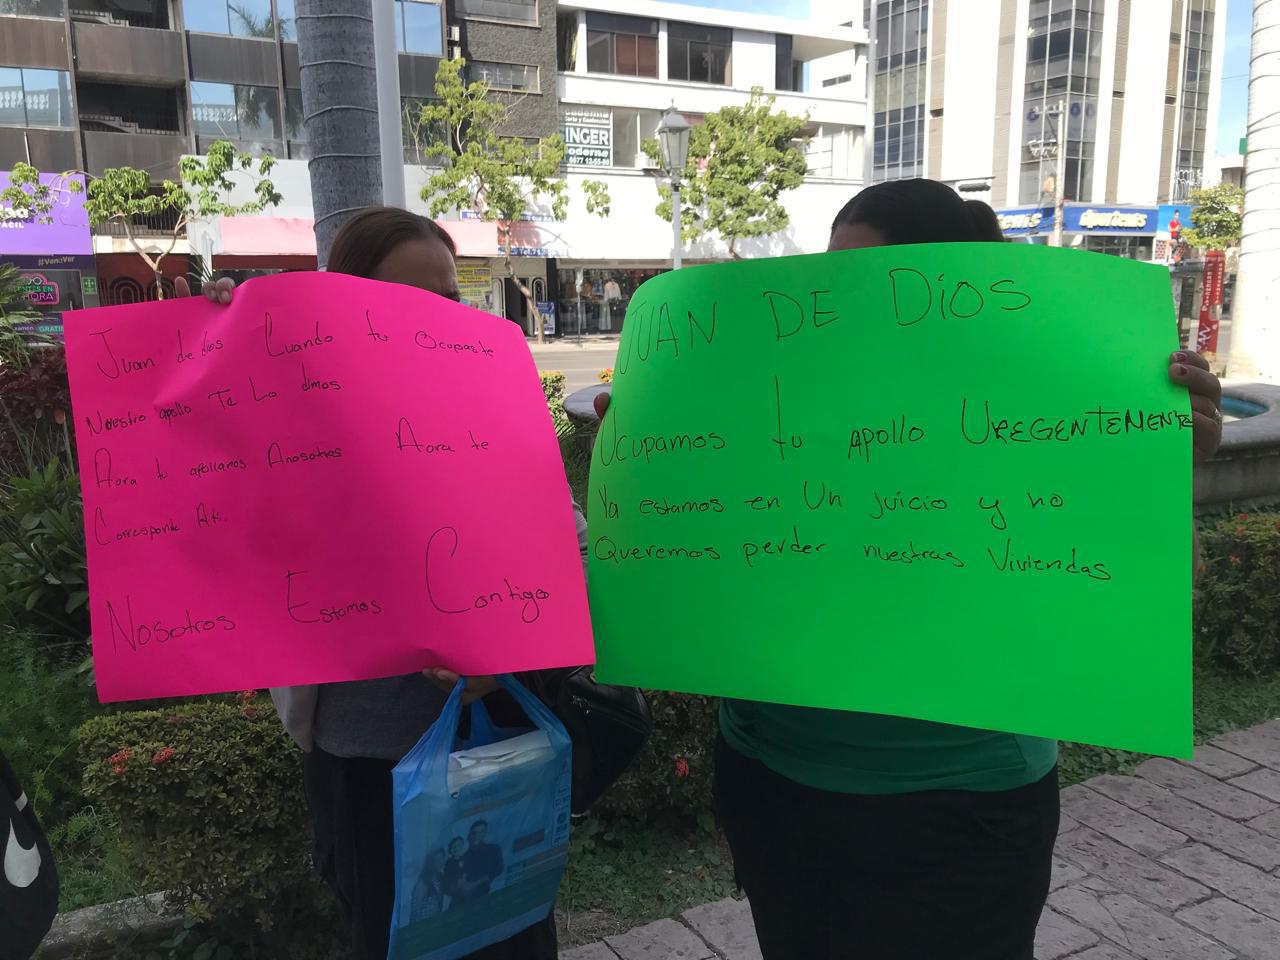 Juan de dios Cuando tu Ocupaste
Nuestro apollo Te Lo dimos
Aora tu apollanos Anosotros Aora te
Corresponde Ati.
Nosotros Estamos Contigo
JUAN DE DiOS
Ocupamos tu apollo UREGENTEMENTE
Ya estamos en Un juicio y no
Queremos perder nuestras Viviendas
INGER
#VenaVer